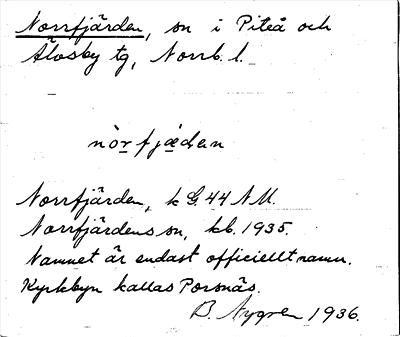 Norrfjärden, sn i Piteå och
Älvsby tg, Norrb. l.
nòrfjæ̀dan
Norrfjärden, k G. 44 NM.
Norrfjärdens sn, kb. 1935.
Namnet är endast officiellt namn.
Kyrkbyn kallas Porsnäs.
B. Nygren 1936.